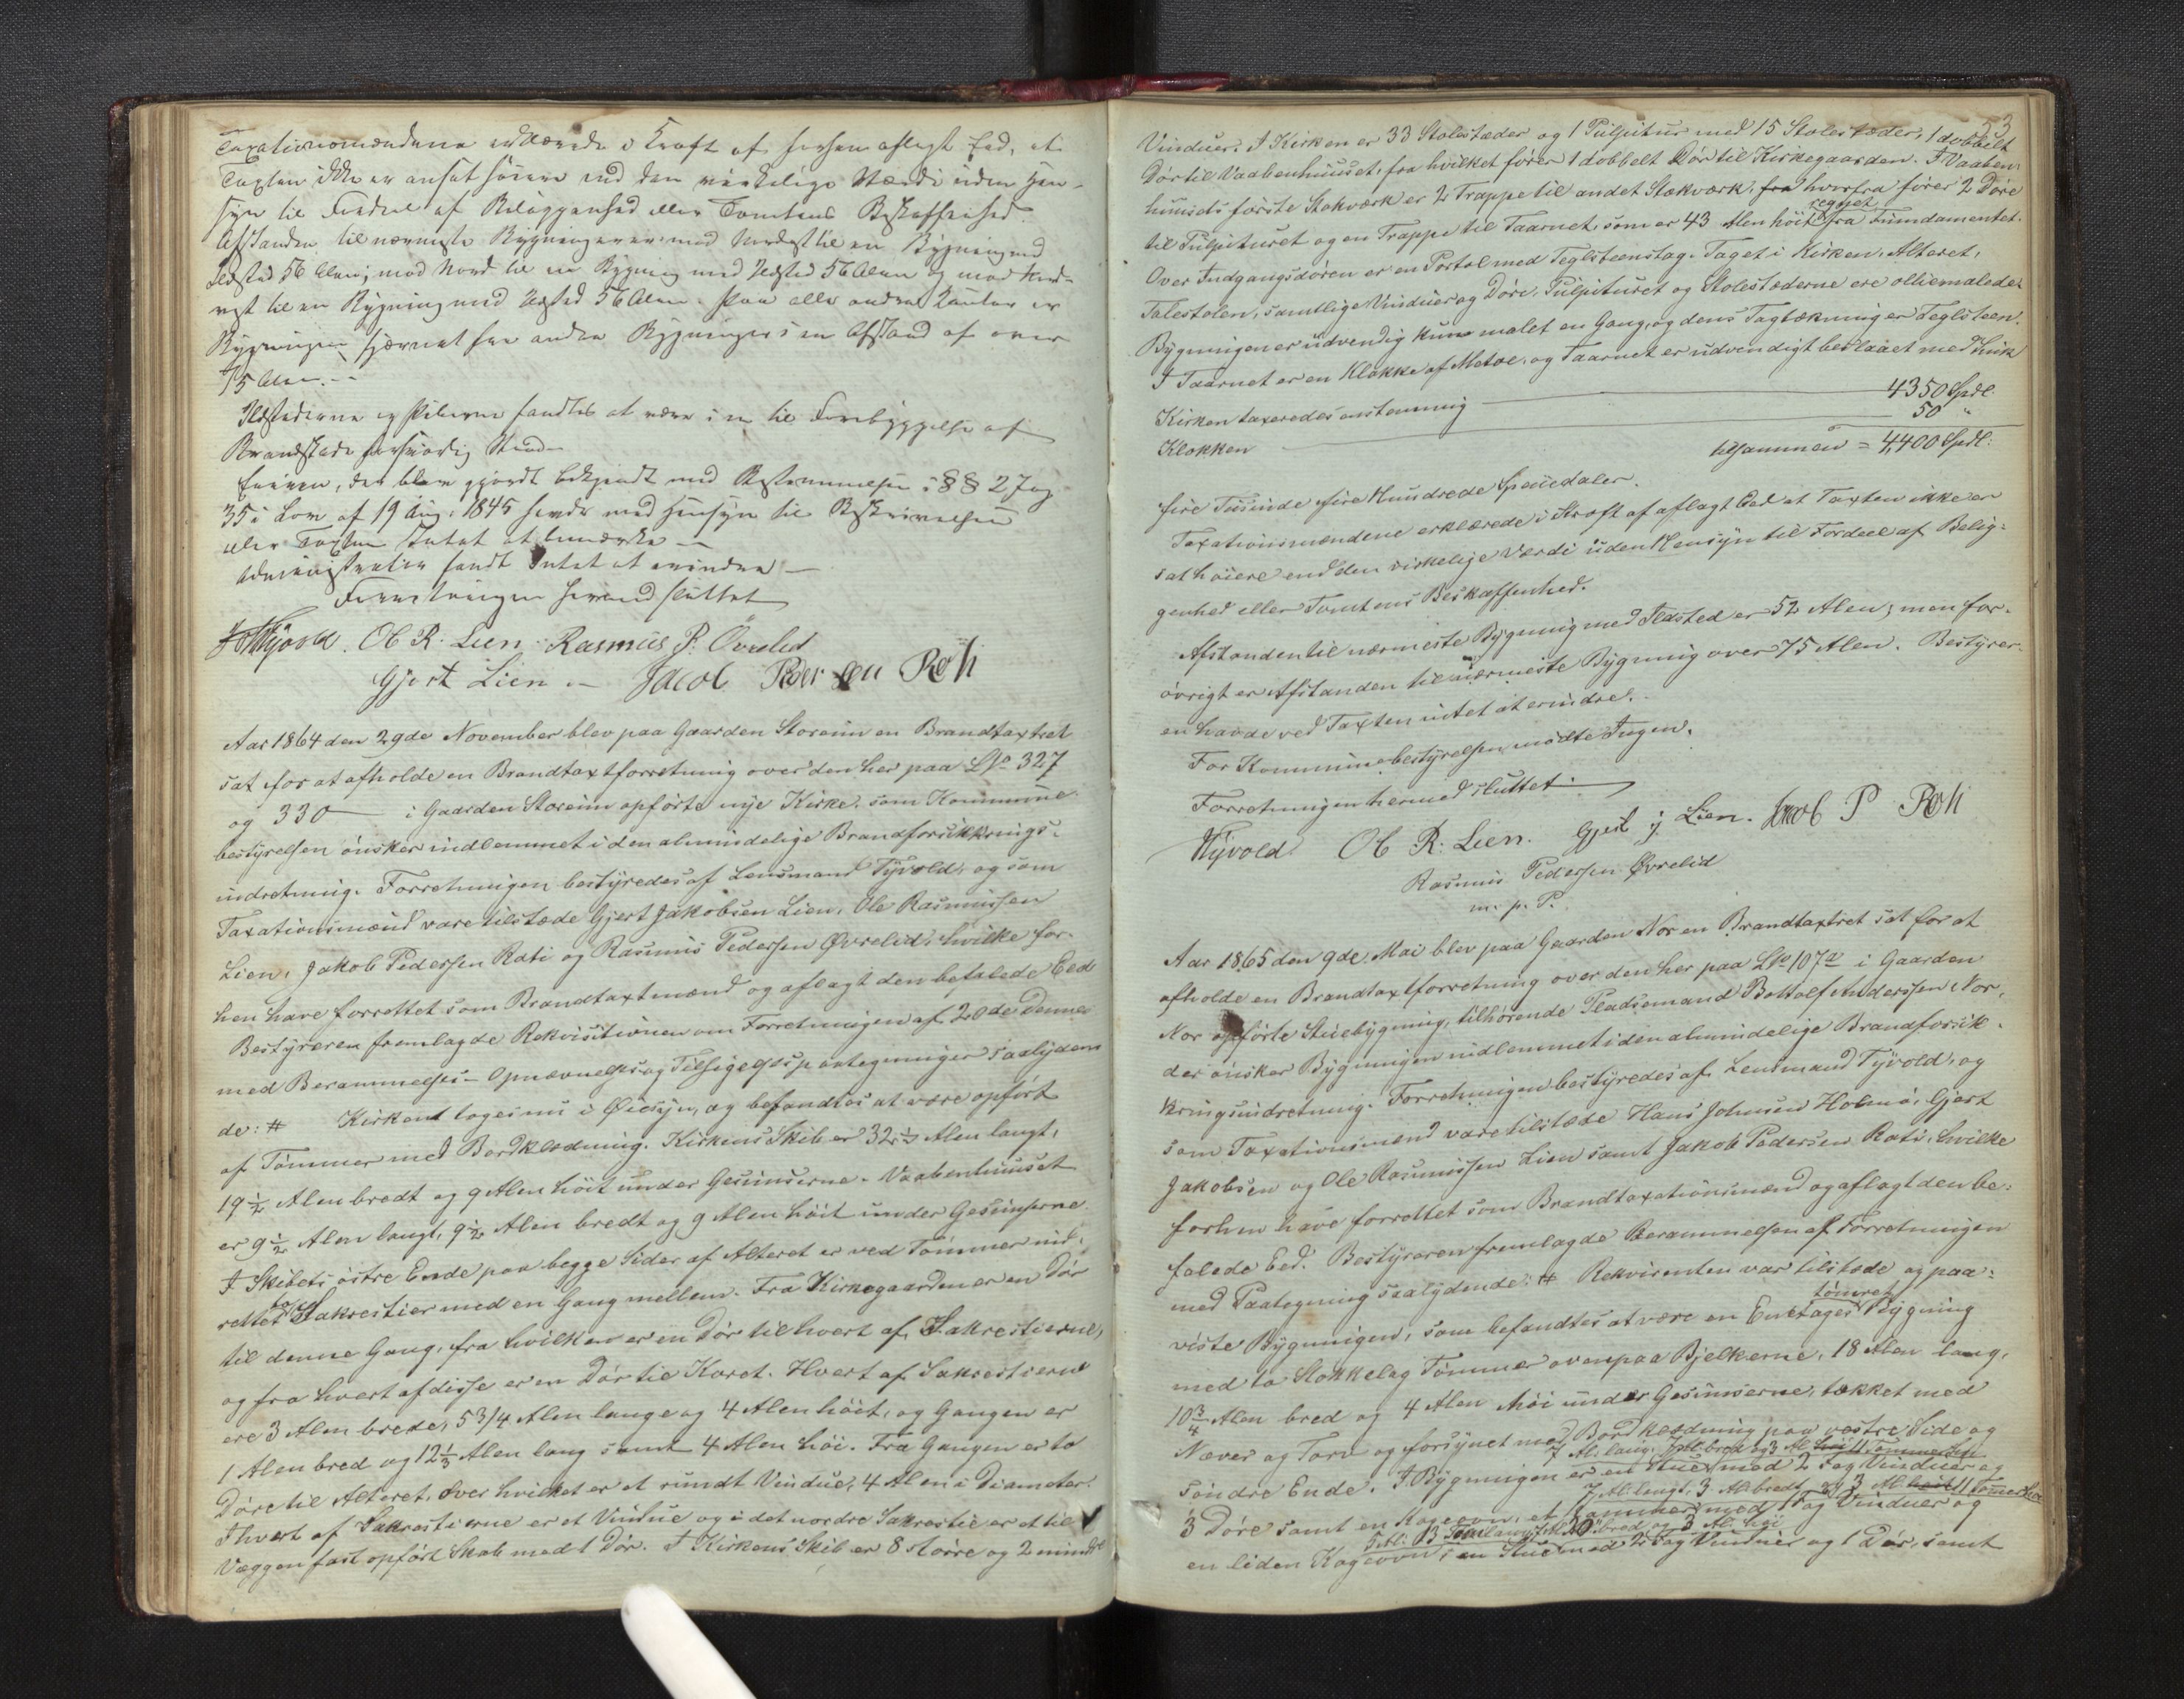 Taxationsmændene erklærede i Kraft af forhen aflagt Eed, at
Taxten ikke er ansat høiere end den virkelige Værdi uden Hen-
syn til Fordeel af Beliggenhed eller Tomtens Beskaffenhed.
Afstanden til nærmeste Bygninger er: mod Nordost til en Bygning med
Ildsted 56 Alen; mod Nord til en Bygning med Ildsted 56 Alen og mod Nord-
vest til en Bygning med Ildsted 56 Alen. Paa alle andre Kanter er
Bygningen fjærnet fra andre Bygninger i en Afstand af over
75 Alen. -
Ildstederne og Piberne fandtes at være i en til Forebyggelse af
Brandskade forsvarlig Stand -
Eieren, der blev gjordt bekjendt med Bestemmelsen i §§ 27 og
35 i Lov af 19 Aug: 1845 havde med Hensyn til Beskrivelsen
eller Taxten Intet at bemærke -
Administrator fandt Intet at erindre -
Forretningen hermed sluttet
Tyvold. Ol R. Lien. Rasmus P. Øvrelid
Gjert Lien. - Jacob Peersen Roti
Aar 1864 den 29de November blev paa Gaarden Storeim en Brandtaxtret
sat for at afholde en Brandtaxtforretning over den her paa LNo 327
og 330 i Gaarden Storeim opførte nye Kirke, som Kommune-
bestyrelsen ønsker indlemmet i den almindelige Brandforsikkrings-
indretning. Forretningen bestyredes af Lensmand Tyvold, og som
Taxationsmænd vare tilstæde Gjert Jakobsen Lien, Ole Rasmussen
Lien, Jakob Pedersen Roti og Rasmus Pedersen Øvrelid, hvilke for-
hen have forrettet som Brandtaxtmænd og aflagt den befalede Eed
Bestyreren fremlagde Rekvisitionen om Forretningen af 20de Dennes
med Berammelses- Opnævnelses og Tilsigelsespaategninger saalyden-
de: # Kirken toges nu i Øiesyn, og befandtes at være opført
af Tømmer med Bordklædning. Kirkens Skib er 32 1/2 Alen langt,
19 1/2 Alen bredt og 9 Alen høit under Gesimserne. Vaabenhuuset
er 9 1/2 Alen langt, 9 1/2 Alen bredt og 9 Alen høit under Gesimserne
I Skibets østre Ende paa begge Sider af Alteret er ved Tømmer ind-
rettet to Sakrestier med en Gang mellem. Fra Kirkegaarden er en Dør
til denne Gang, fra hvilken er en Dør til hvert af Sakrestierne,
og fra hvert af disse er en Dør til Koret. Hvert af Sakrestierne
ere 3 Alen brede, 5 3/4 Alen lange og 4 Alen høit, og Gangen er
1 Alen bred og 12 1/3 Alen lang samt 4 Alen høi. Fra Gangen er to
Døre til Alteret, over hvilket er et rundt Vindue, 4 Alen i Diameter.
I hvert af Sakrestierne er et Vindue og i det nordre Sakrestie er et til
Væggen fast opført Skab med 1 Dør. I Kirkens Skib er 8 større og 2 mindre
53
Vinduer. I Kirken er 33 Stolestæder og 1 Pulpitur med 15 Stolestæder, 1 dobbelt
Dør til Vaabenhuuset, fra hvilket fører 1 dobbelt Dør til Kirkegaarden. I Vaaben-
huusets første Stokværk er 2 Trappe til andet Stokværk, fra hvorfra fører 2 Døre
til Pulpituret og en Trappe til Taarnet, som er 43 Alen høit regnet fra Fundamentet.
Over Indgangsdøren er en Portal med Teglsteenstag. Taget i Kirken, Alteret,
Talestolen, samtlige Vinduer og Døre, Pulpituret og Stolestæderne ere olliemalede.
Bygningen er udvendig kun malet en Gang, og dens Tagtækning er Teglsteen.
I Taarnet er en Klokke af Metal, og Taarnet er udvendigt beslaaet med Zink
Kirken taxeredes enstemmig 4350 Spdl.
Klokken 50 "
tilsammen = 4,400 Spdl:
fire Tusinde fire Hundrede Speciedaler.
Taxationsmændene erklærede i Kraft af aflagt Eed at Taxten ikke er
sat høiere end den virkelige Værdi uden Hensyn til Fordeel af Belig-
genhed eller Tomtens Beskaffenhed.
Afstanden til nærmeste Bygning med Ildsted er 52 Alen; men for-
øvrigt er Afstanden til nærmeste Bygning over 75 Alen. Bestyrer-
en havde ved Taxten intet at erindre.
For Kommunebestyrelsen mødte Ingen.
Forretningen hermed sluttet.
Tyvold Ol R. Lien. Gjert j Lien. Jacob P Roti
Rasmus Pedersen Øvrelid
m. p. P.
Aar 1865 den 9de Mai blev paa Gaarden Nor en Brandtaxtret sat for at
afholde en Brandtaxtforretning over den her paa LNo 107a i Gaarden
Nor opførte Stuebygning, tilhørende Pladsemand Botholf Anderssen Nor,
der ønsker Bygningen indlemmet i den almindelige Brandforsik-
kringsindretning. Forretningen bestyredes af Lensmand Tyvold, og
som Taxationsmænd vare tilstæde Hans Johnsen Holmø, Gjert
Jakobsen og Ole Rasmussen Lien samt Jakob Pedersen Roti, hvilke
forhen have forrettet som Brandtaxationsmænd og aflagt den be-
falede Eed. Bestyreren fremlagde Berammelsen af Forretningen
med Paategning saalydende: # Rekvirenten var tilstæde og paa-
viste Bygningen, som befandtes at være en Eenetages tømret Bygning
med to Stokkelag Tømmer ovenpaa Bjelkerne, 18 Alen lang,
10 3/4 Alen bred og 4 Alen høi under Gesimserne, tækket med
Næver og Torv og forsynet med Bordklædning paa vestre Side og
7 Al. lang, 7 Al. bred og 3 Al. høi
søndre Ende. I Bygningen er en Stue med 2 Fag Vinduer og
7 Al. langt, 3 Al. bredt og 3 Al. høit
3 Døre samt en Kogeovn, et Kammer med 1 Fag Vinduer og
en liden Kogeovn, en Stue med 2 Fag Vinduer og 1 Dør, samt